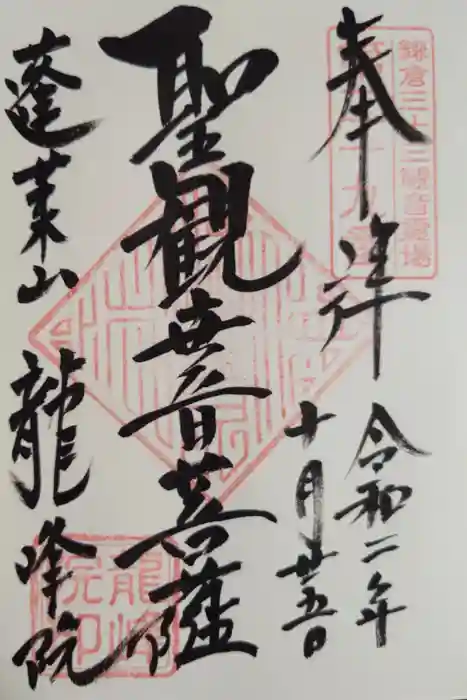 奉拝
令和二年
十月廿五日
聖観世音菩薩
蓬莱山 龍峰院
鎌倉三十三観音霊場
龍峰院印